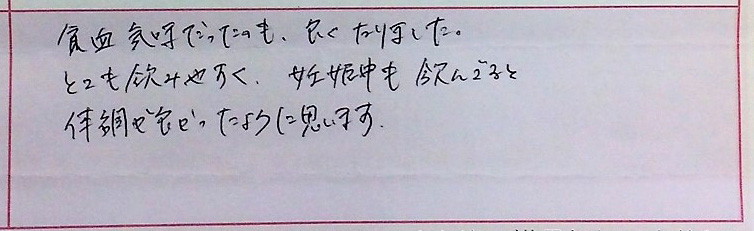 貧血気味だったのも、良くなりました。
とても飲みやすく、妊娠中も飲んでると
体調が良かったように思います。